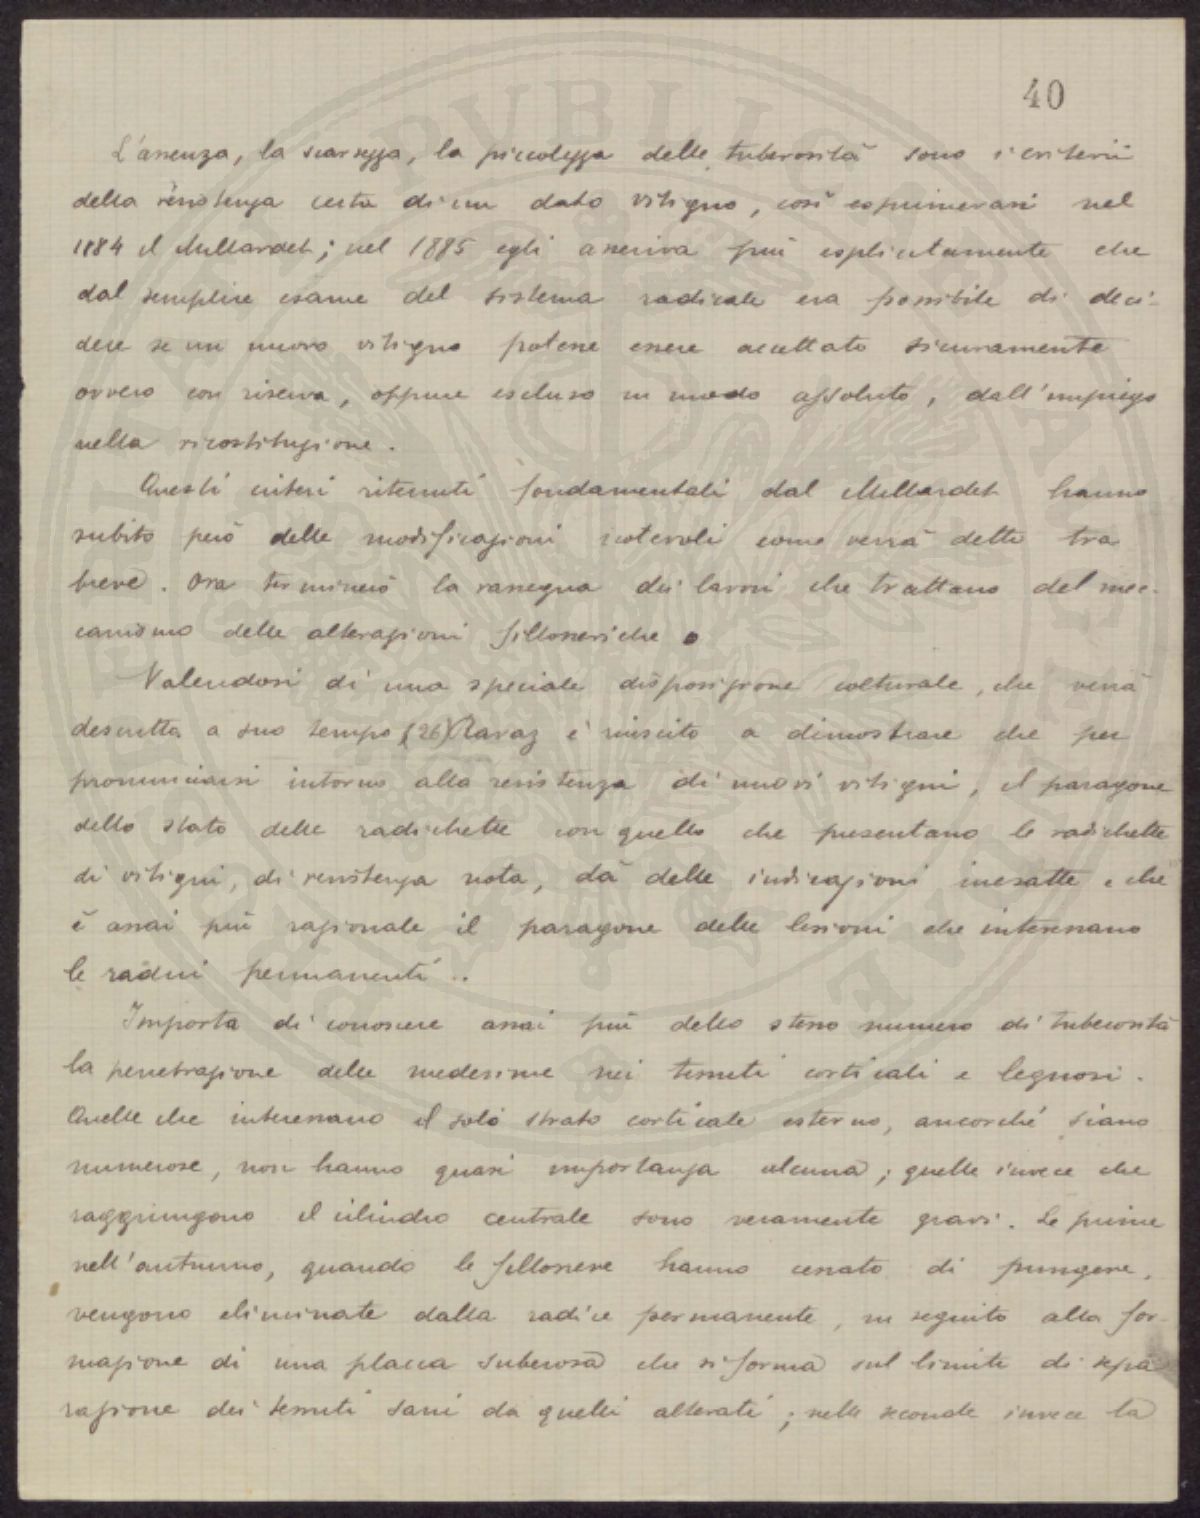 40
L'assenza, la scarsezza, la piccolezza delle tuberosità sono i criterii
della resistenza certa di un dato vitigno, così esprimevasi nel
1884 il Millardet; nel 1885 egli asseriva più esplicitamente che
dal semplice esame del sistema radicale era possibile di deci-
dere se un nuovo vitigno potesse essere accettato sicuramente
ovvero con riserva, oppure escluso in modo assoluto, dall'impiego
nella ricostituzione.
Questi criteri ritenuti fondamentali dal Millardet hanno
subito però delle modificazioni notevoli come verrà detto tra
breve. Ora terminerò la rassegna dei lavori che trattano del mec-
canismo delle alterazioni fillosseriche.
Valendosi di una speciale disposizione colturale, che verrà
descritta a suo tempo (26) Ravaz è riuscito a dimostrare che per
pronunciarsi intorno alla resistenza di nuovi vitigni, il paragone
dello stato delle radichette con quello che presentano le radichette
di vitigni, di resistenza nota, dà delle indicazioni inesatte e che
è assai più razionale il paragone delle lesioni che interessano
le radici permanenti..
Importa di conoscere assai più dello stesso numero di tuberosità
la penetrazione delle medesime nei tessuti corticali e legnosi.
Quelle che interessano il solo strato corticale esterno, ancorché siano
numerose, non hanno quasi importanza alcuna; quelle invece che
raggiungono il cilindro centrale sono veramente gravi. Le prime
nell'autunno, quando le fillossere hanno cessato di pungere,
vengono eliminate dalla radice permanente, in seguito alla for-
mazione di una placca suberosa che si forma sul limite di sepa
razione dei tessuti sani da quelli alterati; nelle seconde invece la